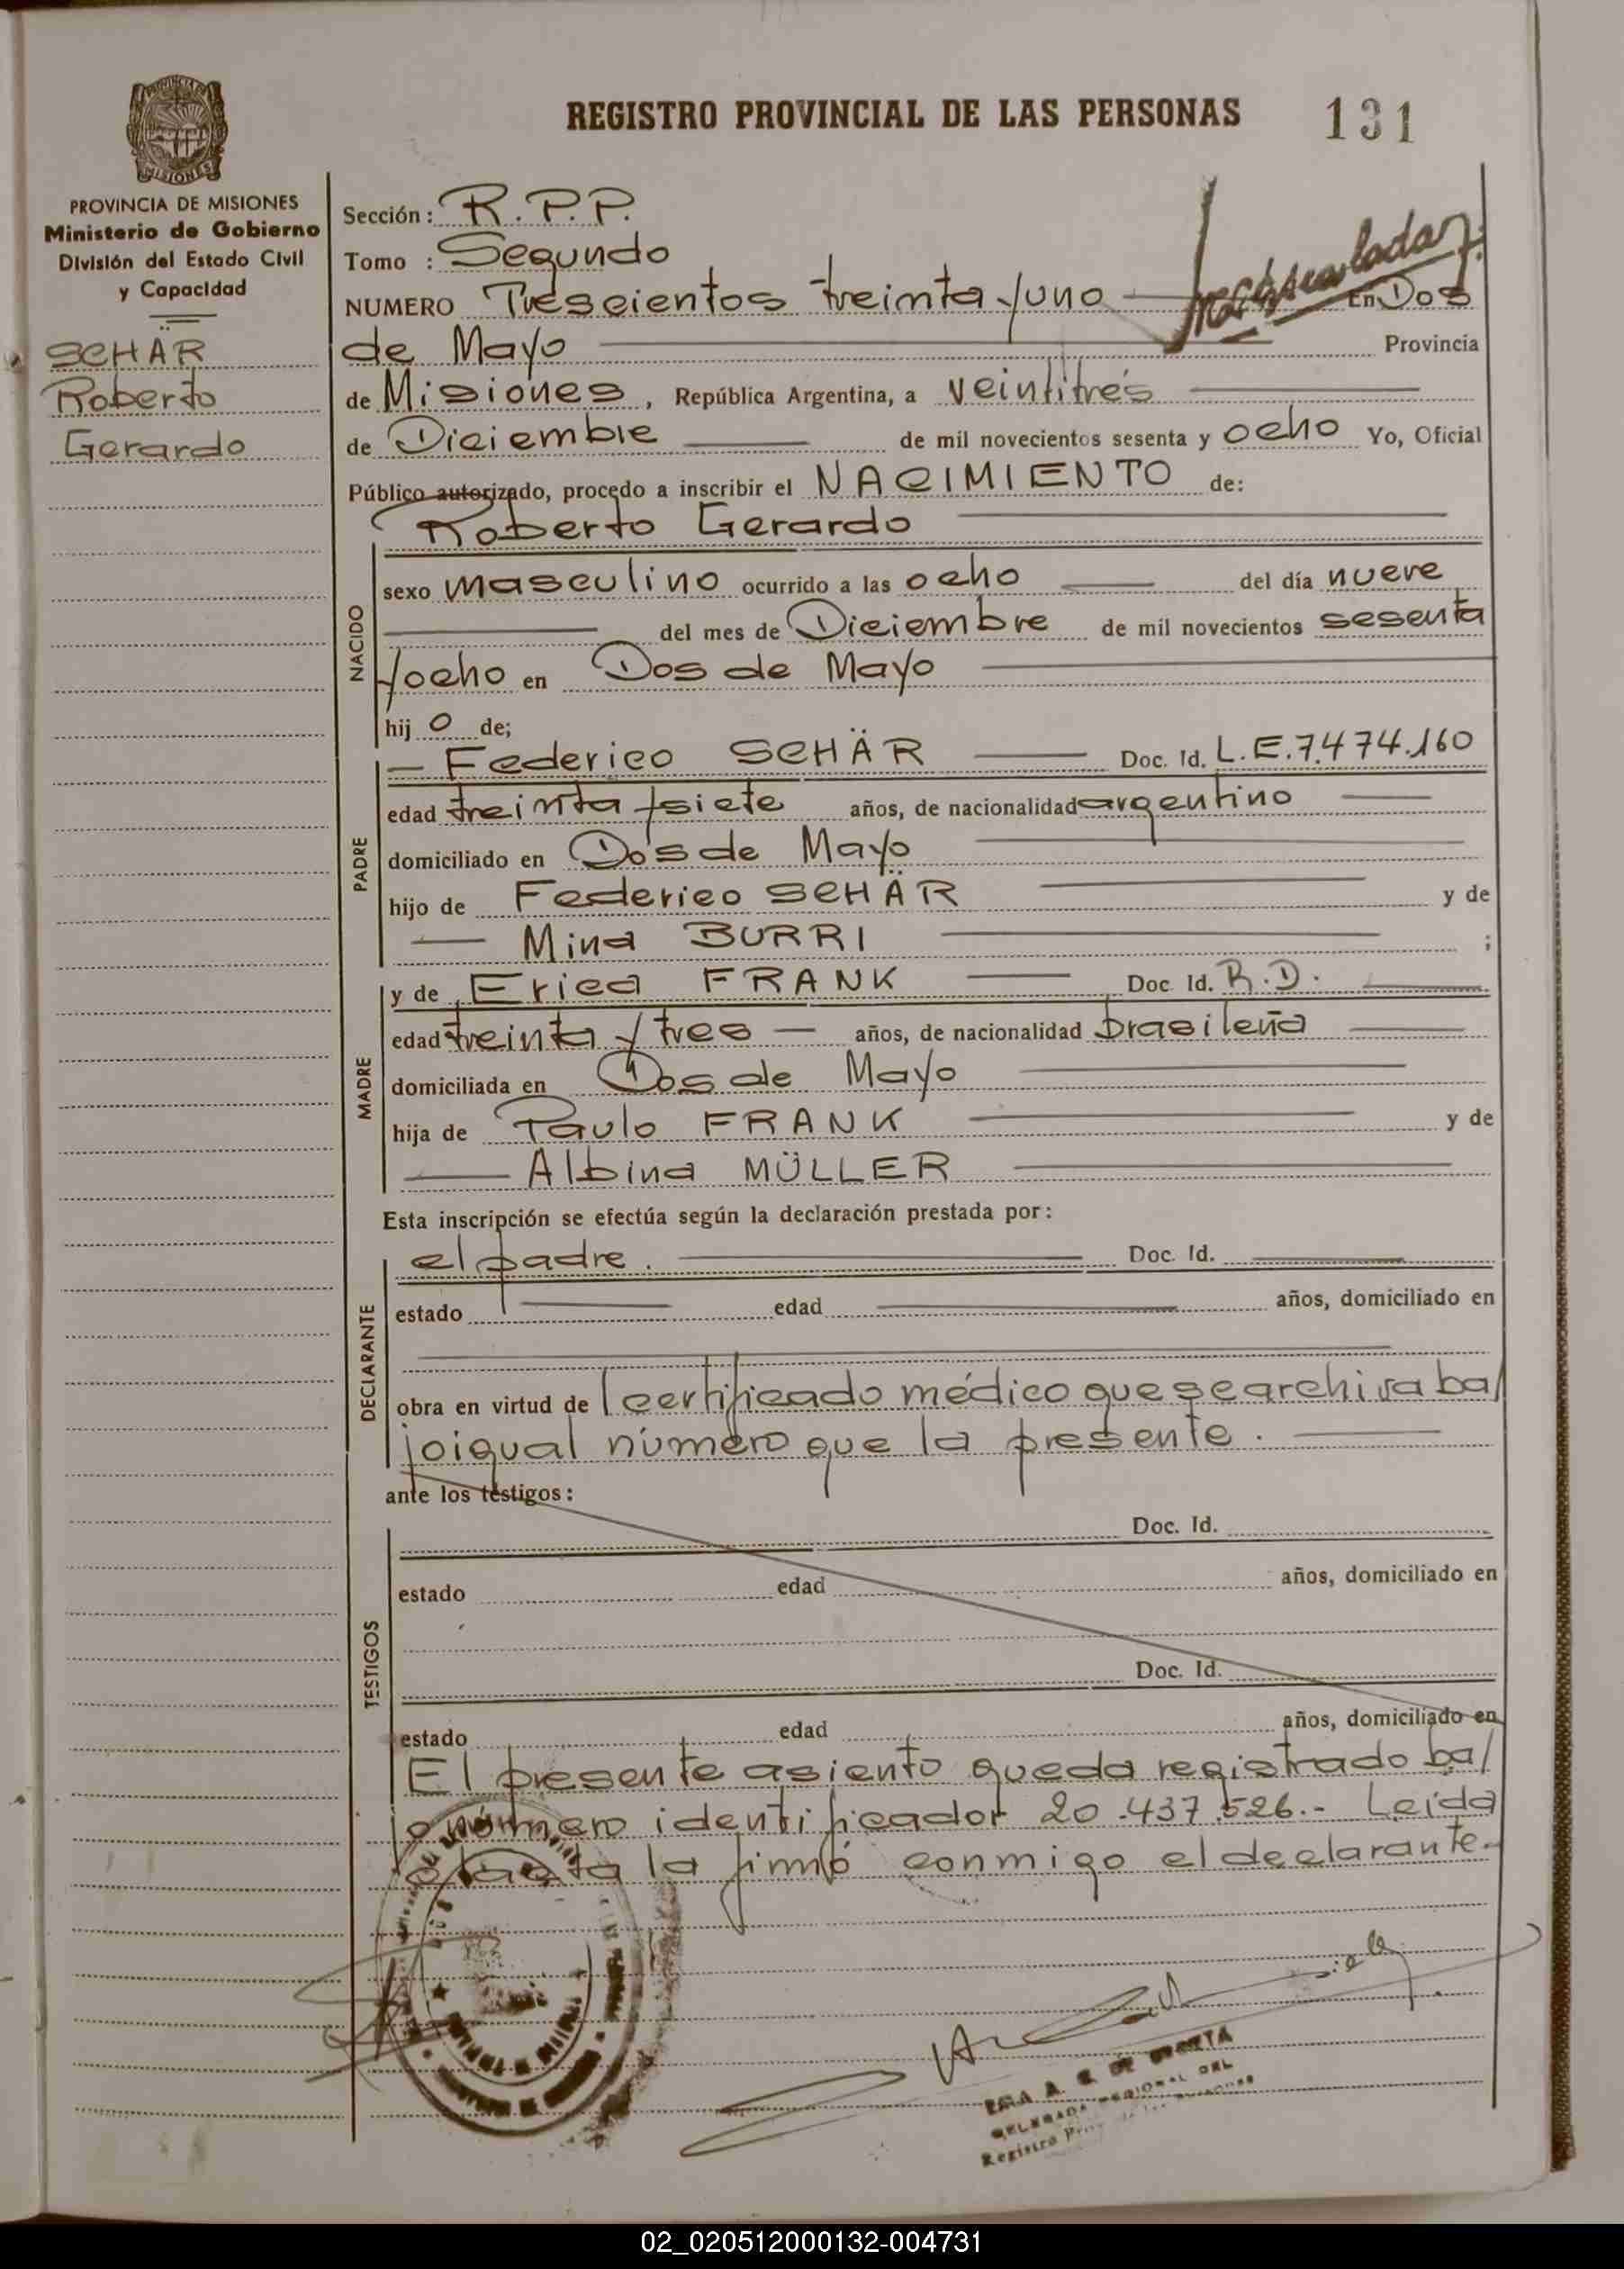 REGISTRO PROVINCIAL DE LAS PERSONAS 131
PROVINCIA DE MISIONES
Ministerio de Gobierno
División del Estado Civil
y Capacidad
SCHÄR
Roberto
Gerardo
Sección: R.P.P.
Tomo: Segundo
NUMERO Trescientos treinta y uno En Dos
de Mayo Provincia
de Misiones, República Argentina, a veintitrés
de Diciembre de mil novecientos sesenta y ocho Yo, Oficial
Público autorizado, procedo a inscribir el NACIMIENTO de:
Roberto Gerardo
NACIDO
sexo masculino ocurrido a las ocho del día nueve
del mes de Diciembre de mil novecientos sesenta
y ocho en Dos de Mayo
hijo de;
PADRE
- Federico SCHÄR Doc. Id. L.E.7.474.160
edad treinta y siete años, de nacionalidad argentino
domiciliado en Dos de Mayo
hijo de Federico SCHÄR y de
Mina BURRI ;
MADRE
y de Erica FRANK Doc. Id. R.D.
edad treinta y tres años, de nacionalidad brasileña
domiciliada en Dos de Mayo
hija de Paulo FRANK y de
Albina MÜLLER
Esta inscripción se efectúa según la declaración prestada por:
DECLARANTE
el padre. Doc. Id.
estado edad años, domiciliado en
obra en virtud de l certificado médico que se archiva ba/
jo igual número que la presente.
ante los testigos:
TESTIGOS
Doc. Id.
estado edad años, domiciliado en
Doc. Id.
estado edad años, domiciliado en
El presente asiento queda registrado ba/
jo número identificador 20.437.526.- Leída
el acta la firmó conmigo el declarante.-
DELEGADA REGIONAL DEL
Registro
02_020512000132-004731